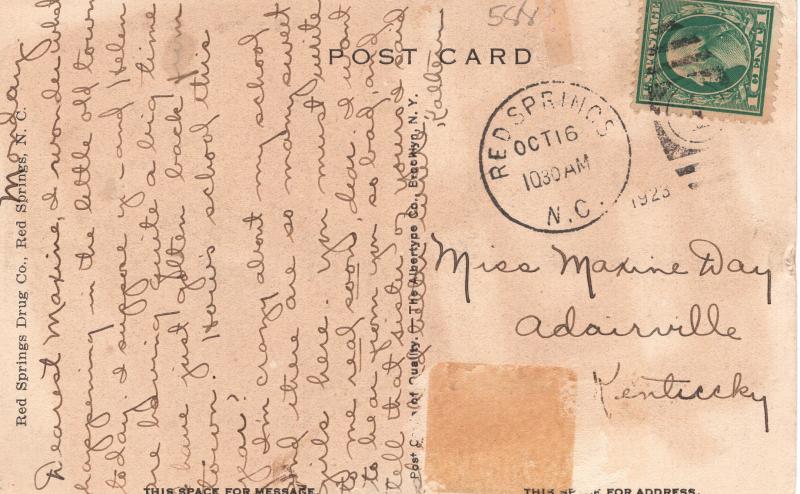 588
POST CARD
1 CENT 1
U.S. POSTAGE
RED SPRINGS
OCT 16
1030 AM
N.C.
1923
Miss Maxine Day
Adairville
Kentucky
THIS SPACE FOR ADDRESS.
THIS SPACE FOR MESSAGE
Red Springs Drug Co., Red Springs, N. C.
Post C of Quality. © The Albertype Co., Brooklyn, N. Y.
Monday
Dearest Maxine, I wonder what
happening in the little old town
today. I suppose y- and Helen
are having quite a big time
have just gotten back from
town. How's school this
year?
I'm crazy about my school
and there are so many sweet
girls here. You must write
to me real soon, dear. I want
to hear from you so bad and
tell that sister of yours I said
Kathleen